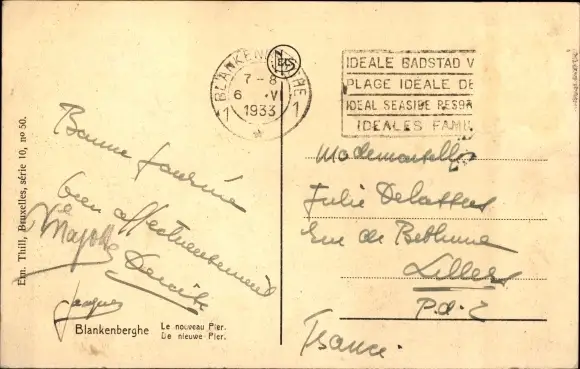 Em. Thill, Bruxelles, série 10, no 50.
BLANKENBERGHE
7-8
6 V
1933
1 1
IDEALE BADSTAD V
PLAGE IDÉALE DE
IDEAL SEASIDE RESOR
IDEALES FAMIL
Bonne journée
bien affectueusement
Jacques
Mademoiselle
Julie Delattre
Rue de Bethune
Lillers
P.d.C
France
Blankenberghe Le nouveau Pier.
De nieuwe Pier.